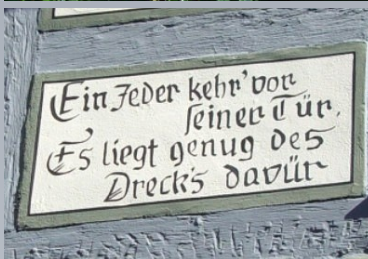 Ein Jeder kehr' vor
seiner Tür.
Es liegt genug des
Drecks davür